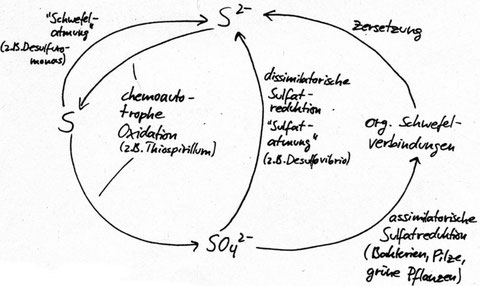 "Schwefel-
atmung"
(z.B. Desulfuro-
monas)
S²⁻
Zersetzung
S
chemoauto-
trophe
Oxidation
(z.B. Thiospirillum)
dissimilatorische
Sulfat-
reduktion
"Sulfat-
atmung"
(z.B. Desulfovibrio)
org. Schwefel-
verbindungen
SO₄²⁻
assimilatorische
Sulfatreduktion
(Bakterien, Pilze,
grüne Pflanzen)